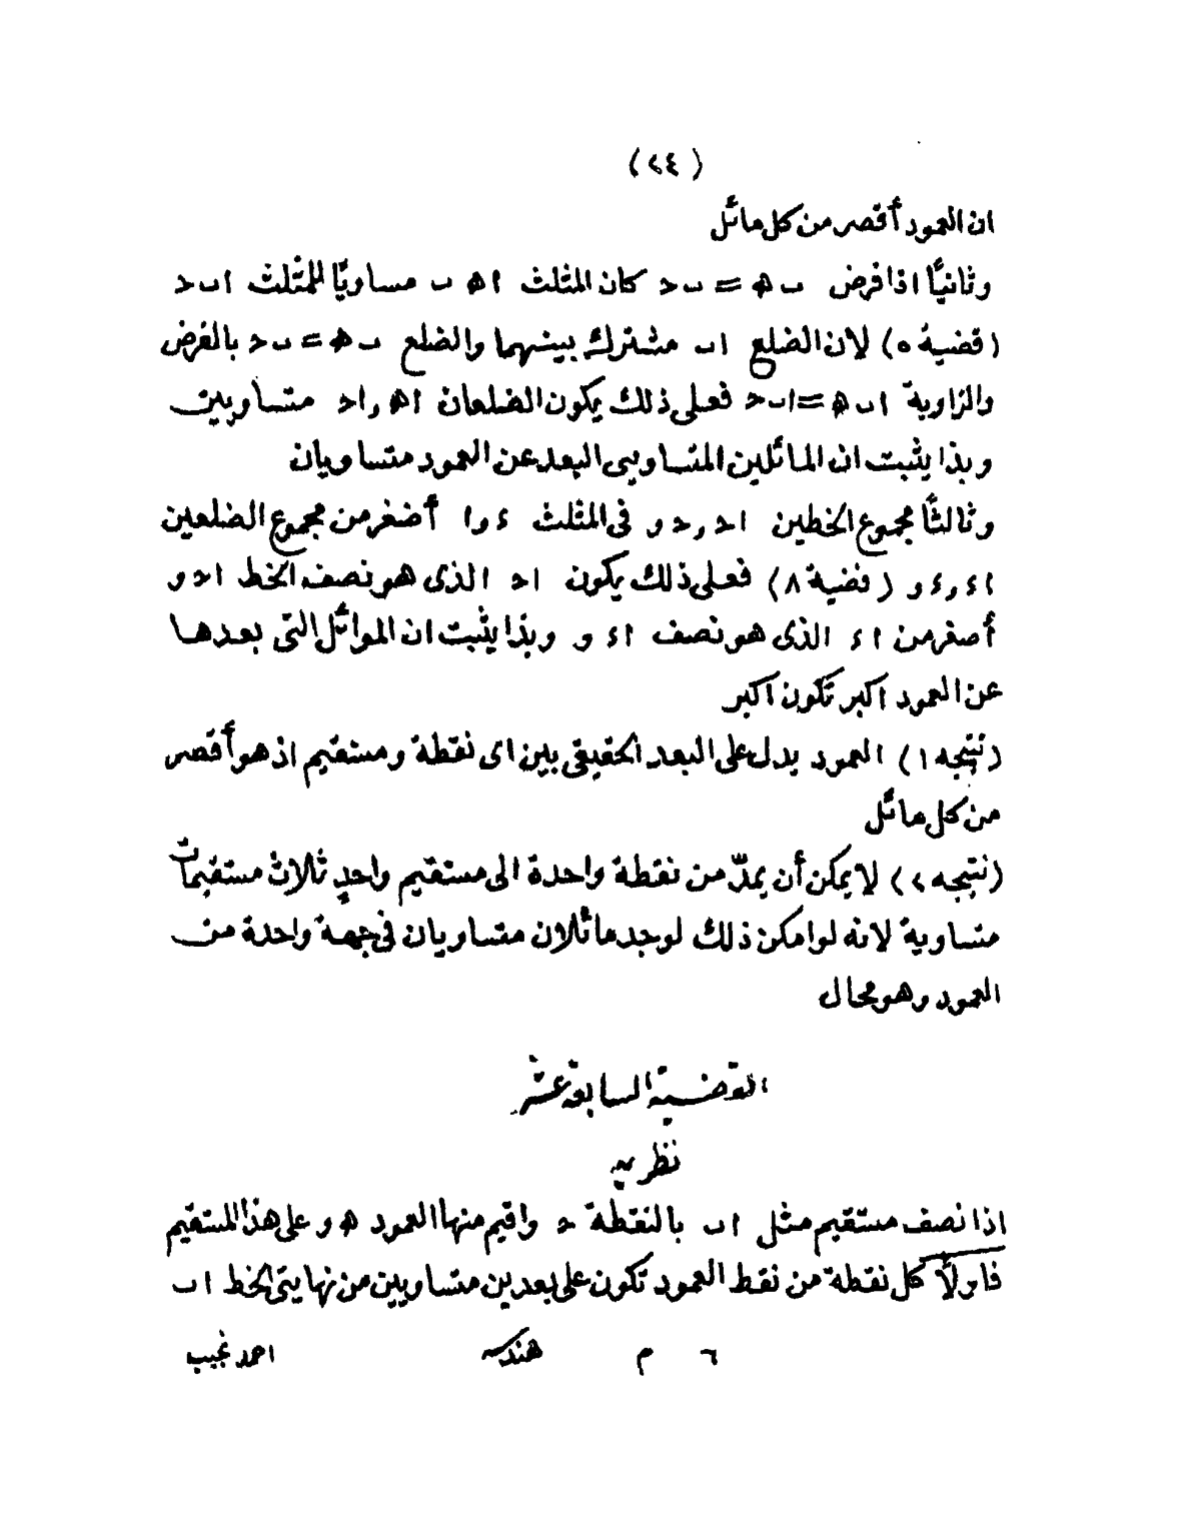 (٢٤)
ان العمود أقصر من كل مائل
وثانيًا اذا فرض ب ه = ب د كان المثلث ا ه ب مساويًا للمثلث ا ب د
(قضية ٥) لان الضلع ا ب مشترك بينهما والضلع ب ه = ب د بالفرض
والزاوية ا ب ه = ا ب د فعلى ذلك يكون الضلعان ا ه و ا د متساويين
وبذا يثبت ان المائلين المتساويى البعد عن العمود متساويان
وثالثًا مجموع الخطين ا د و د و فى المثلث ء و ا أصغر من مجموع الضلعين
ا ء و ء و (قضية ٨) فعلى ذلك يكون ا د الذى هو نصف الخط ا د و
أصغر من ا ء الذى هو نصف ا ء و وبذا يثبت ان الموائل التى بعدها
عن العمود اكبر تكون اكبر
(نتيجه ١) العمود يدل على البعد الحقيقى بين اى نقطة ومستقيم اذ هو أقصر
من كل مائل
(نتيجه ٢) لا يمكن أن يمدّ من نقطة واحدة الى مستقيم واحدٍ ثلاث مستقيمات
متساوية لانه لو امكن ذلك لوجد مائلان متساويان فى جهة واحدة من
العمود وهو محال
القضية السابعة عشر
نظريه
اذا نصف مستقيم مثل ا ب بالنقطة د واقيم منها العمود ه و على هذا المستقيم
فاولاً كل نقطة من نقط العمود تكون على بعدين متساويين من نهايتى الخط ا ب
٦ م هندسه احمد نجيب